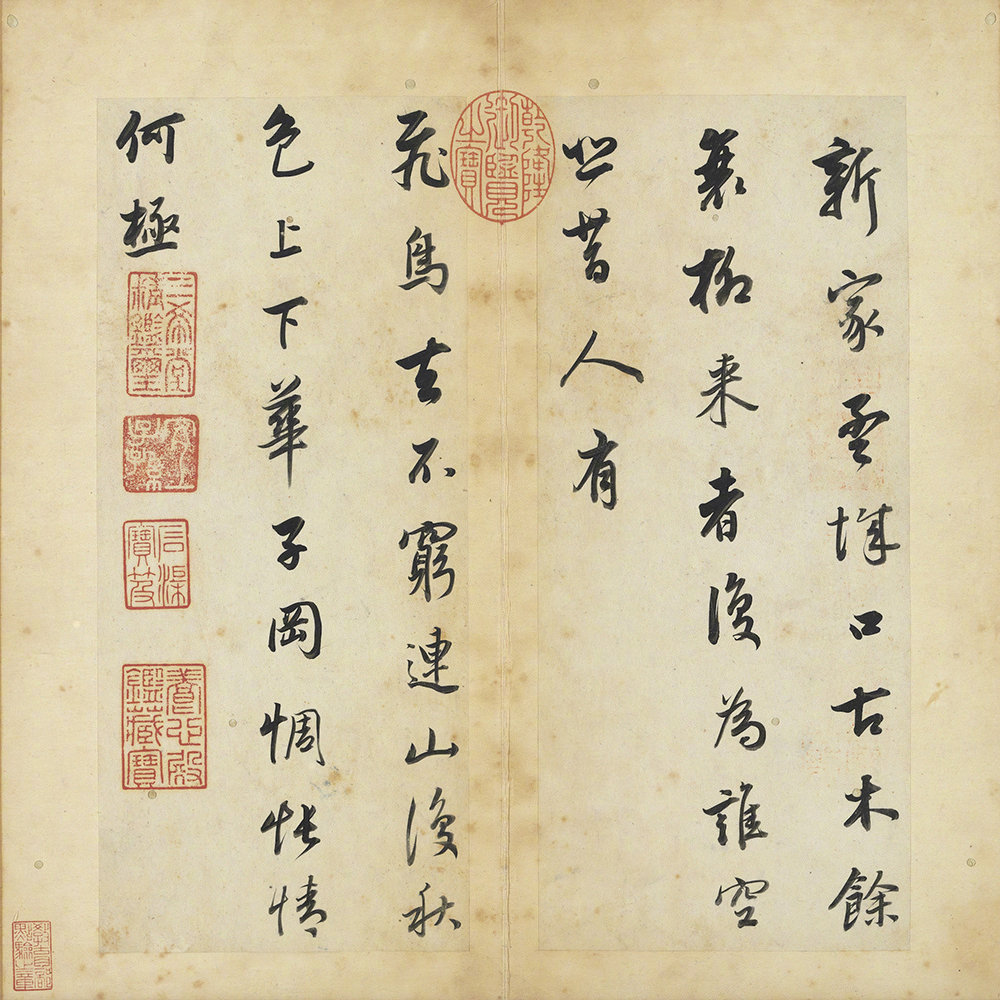 新家孟城口古木餘
衰柳来者復為誰空
悲昔人有
乾隆御覽之寶
飛鳥去不窮連山復秋
色上下華子岡惆悵情
何極
三希堂精鑑璽
石渠寶笈
養心殿鑑藏寶
教育部點驗之章